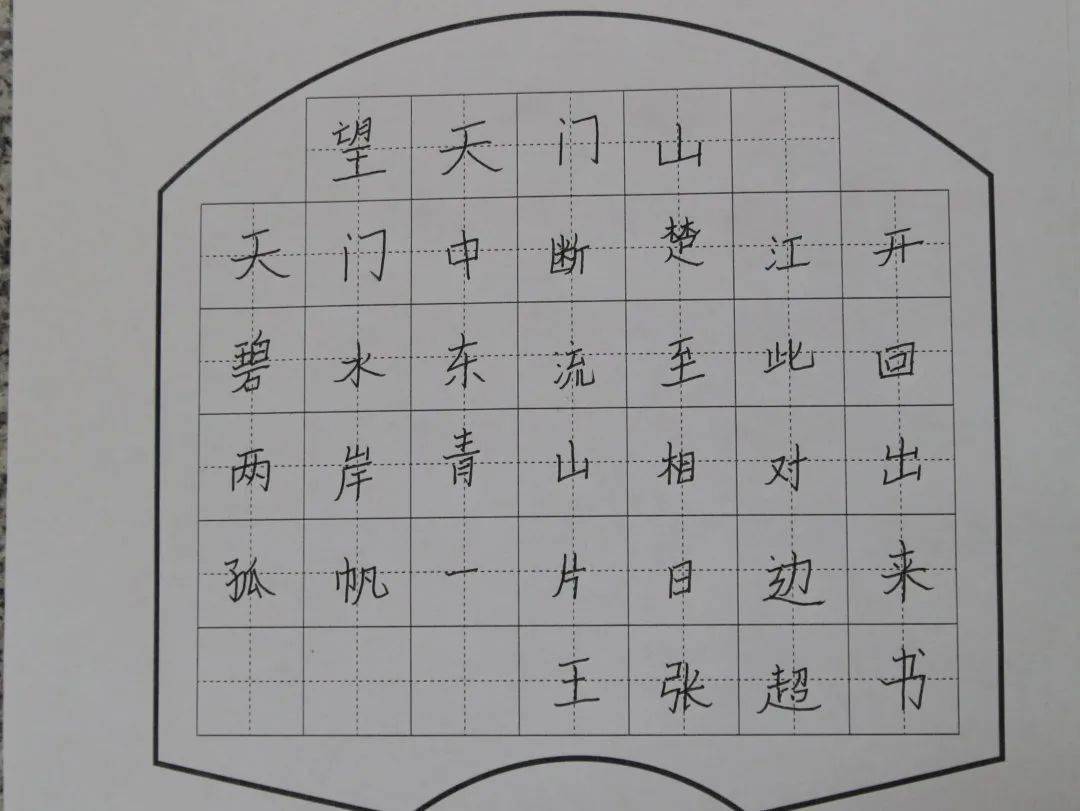 望天门山
天门中断楚江开
碧水东流至此回
两岸青山相对出
孤帆一片日边来
王张超书